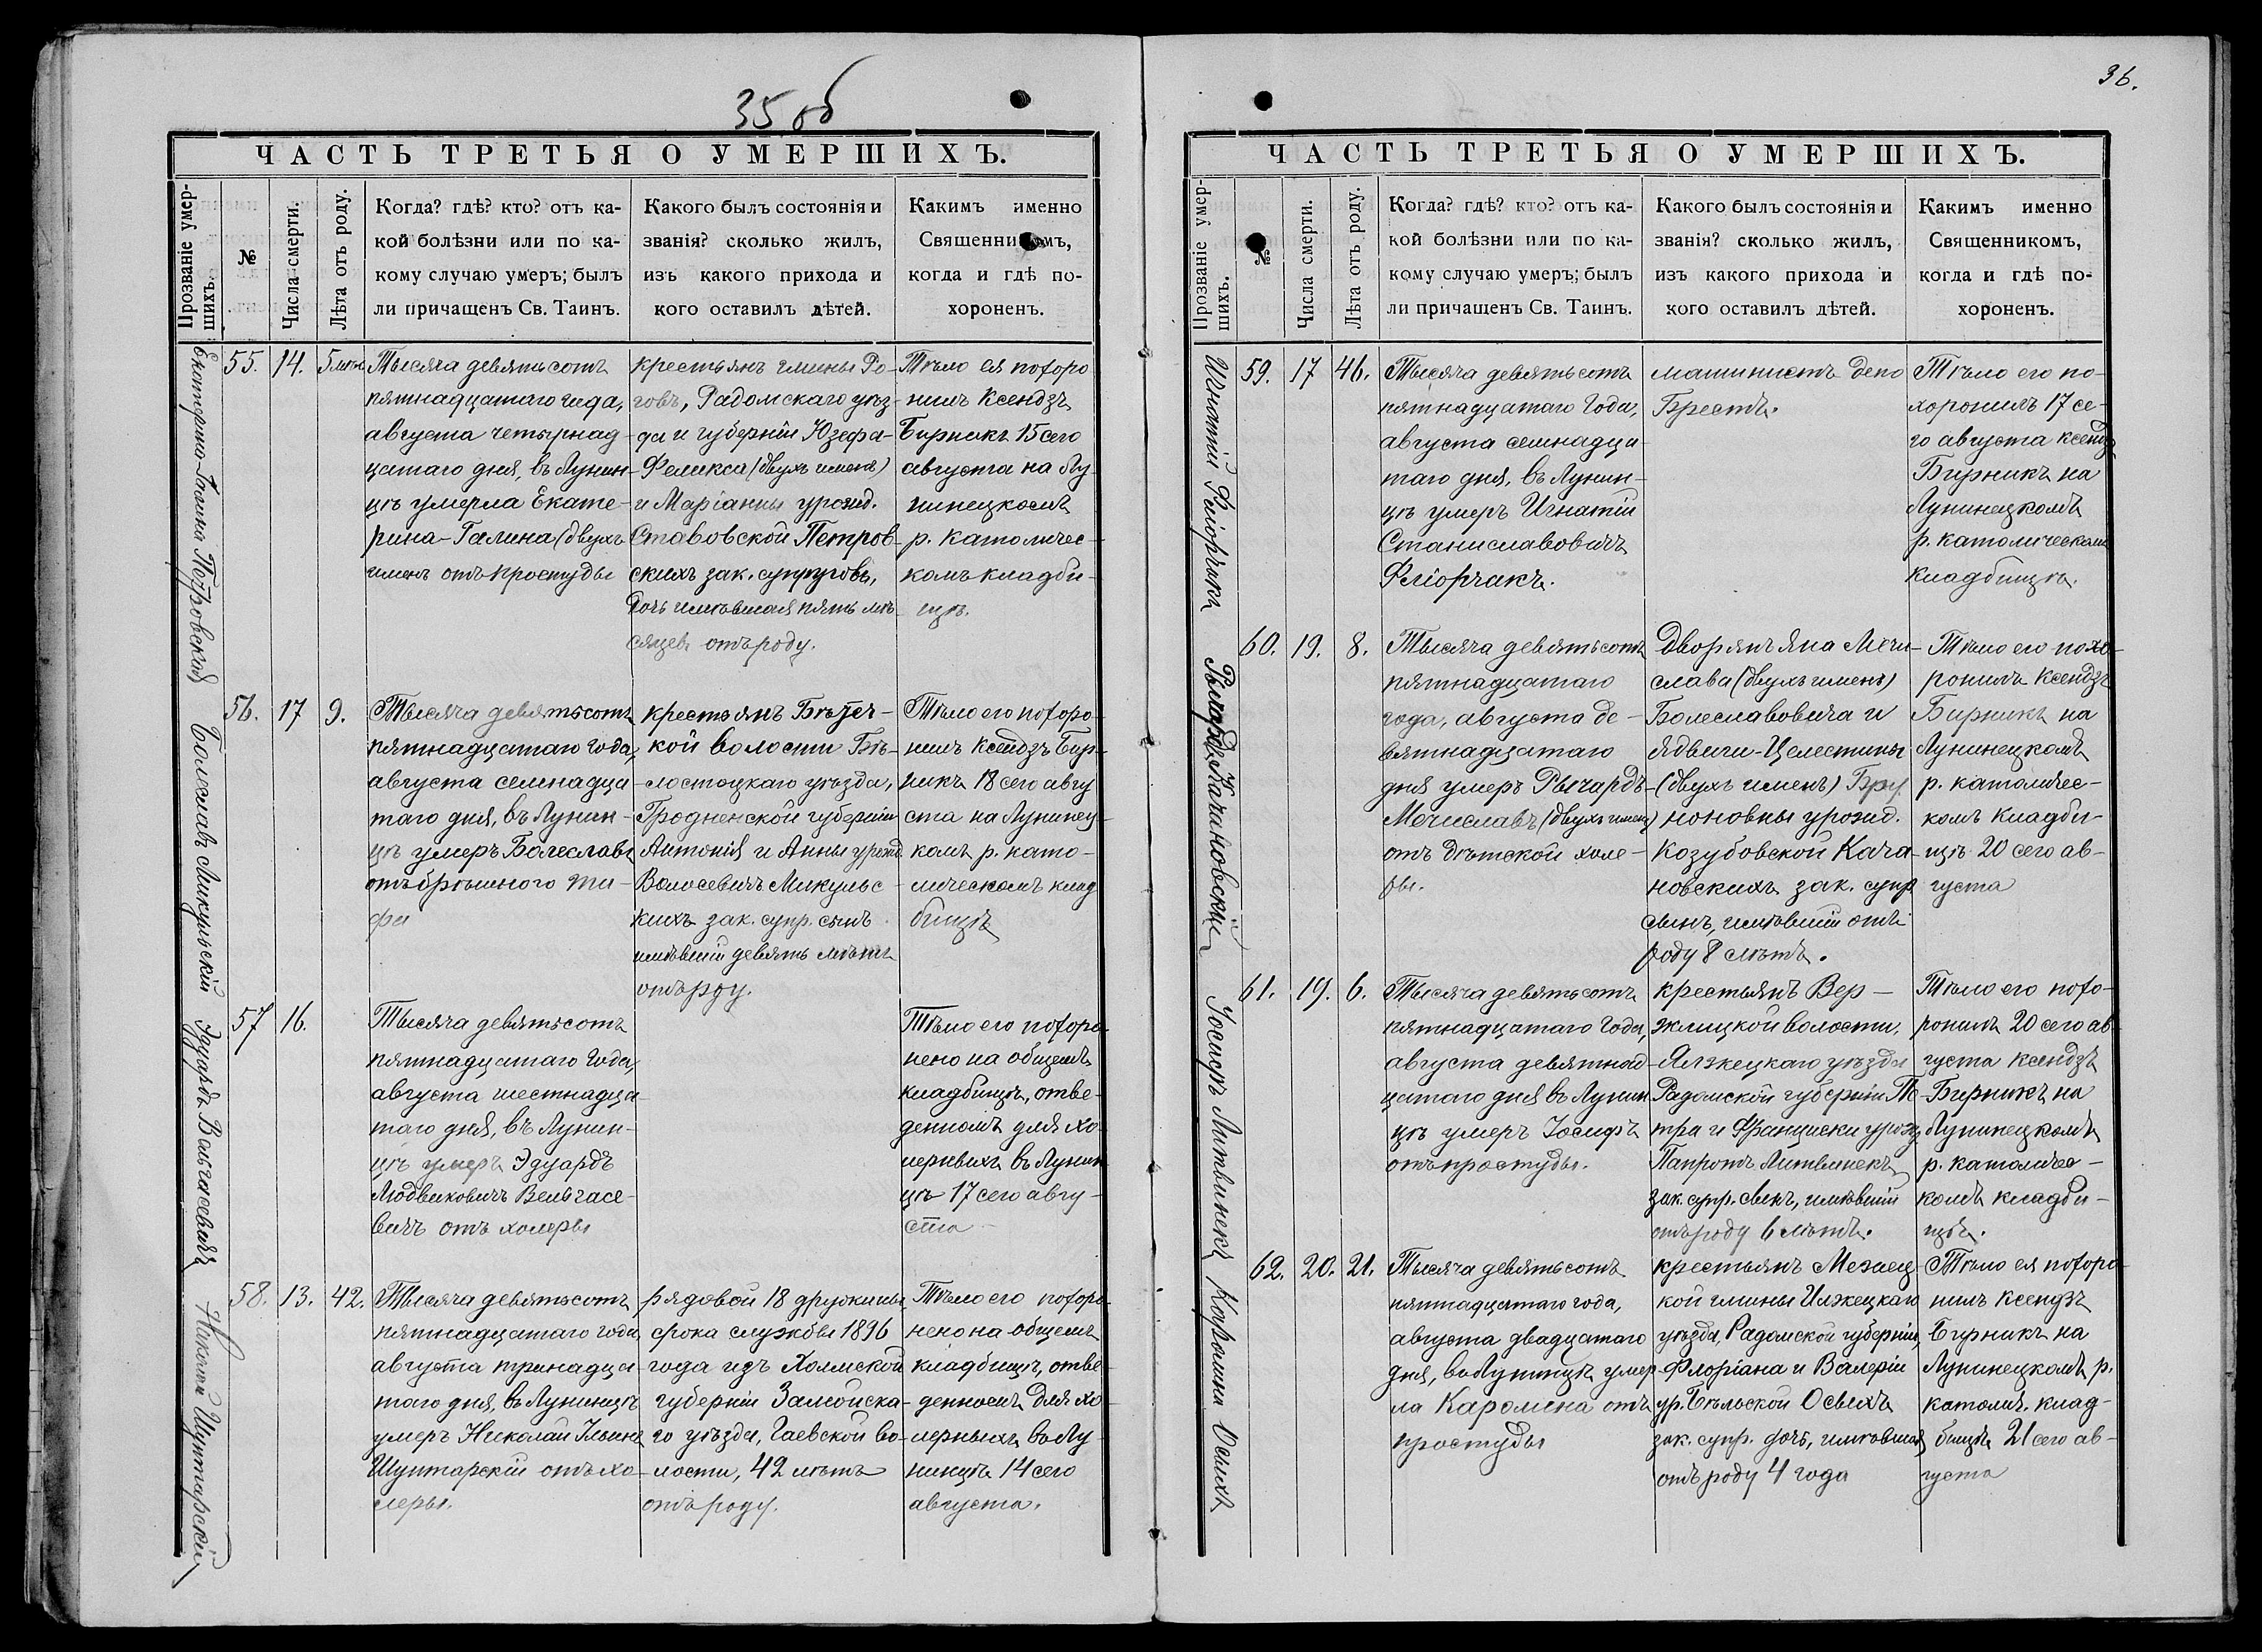 35 об
ЧАСТЬ ТРЕТЬЯ О УМЕРШИХЪ.
Прозваніе умер-
шихъ.
№
Числа смерти.
Лѣта отъ роду.
Когда? гдѣ? кто? отъ ка-
кой болѣзни или по ка-
кому случаю умеръ; былъ
ли причащенъ Св. Таинъ.
Какого былъ состоянія и
званія? сколько жилъ,
изъ какого прихода и
кого оставилъ дѣтей.
Какимъ именно
Священникомъ,
когда и гдѣ по-
хороненъ.
Екатерина-Галина Петровская
55.
14.
Тысяча девятьсотъ
пятнадцатаго года,
августа четырнад-
цатаго дня, въ Лунин-
цѣ умерла Екате-
рина-Галина (двухъ
именъ отъ простуды
крестьянъ гмины Ро-
говъ, Радомскаго уѣз-
да и губерніи Юзефа-
Феликса (двухъ именъ)
и Маріанны урожд.
Ставовской Петров-
скихъ зак. супруговъ,
дочь имѣвшая пять мѣ-
сяцевъ отъ роду.
Тѣло ея похоро
нилъ Ксендзъ
Бирникъ 15 сего
августа на Лу-
нинецкомъ
р. католичес-
комъ кладби-
щѣ.
Болеславъ Микульскій
56.
17
9.
Тысяча девятьсотъ
пятнадцатаго года,
августа семнадца
таго дня, въ Лунин-
цѣ умеръ Болеславъ
отъ брюшного ти-
фа
крестьянъ
кой волости Бѣ-
лостоцкаго уѣзда,
Гродненской губерніи
Антонія и Анны урожд.
Волосевичъ Микульс-
кихъ зак. супр. сынъ
имѣвшій девять лѣтъ
отъ роду.
Тѣло его похоро-
нилъ Ксендзъ Бир-
никъ 18 сего авгу
ста на Лунинец-
комъ р. като-
лическомъ клад
бищѣ
Эдуардъ
57
16.
Тысяча девятьсотъ
пятнадцатаго года,
августа шестнадца-
таго дня, въ Лунин-
цѣ умеръ Эдуардъ
Людвиковичъ
отъ холеры
Тѣло его похоро-
нено на общемъ
кладбищѣ, отве-
денномъ для хо-
лерныхъ въ Лунин
цѣ 17 сего авгу-
ста
Николай Шунтарскій
58.
13.
42.
Тысяча девятьсотъ
пятнадцатаго года
августа тринадца-
таго дня, въ Лунинцѣ
умеръ Николай Ильинъ
Шунтарскій отъ хо-
леры.
рядовой 18 дружины
срока службы 1896
года изъ Холмской
губерніи Замойска-
го уѣзда, Гаевской во-
лости, 42 лѣтъ
отъ роду.
Тѣло его похоро-
нено на общемъ
кладбищѣ, отве-
денномъ для хо-
лерныхъ въ Лу-
нинцѣ 14 сего
августа.
36.
ЧАСТЬ ТРЕТЬЯ О УМЕРШИХЪ.
Прозваніе умер-
шихъ.
№
Числа смерти.
Лѣта отъ роду.
Когда? гдѣ? кто? отъ ка-
кой болѣзни или по ка-
кому случаю умеръ; былъ
ли причащенъ Св. Таинъ.
Какого былъ состоянія и
званія? сколько жилъ,
изъ какого прихода и
кого оставилъ дѣтей.
Какимъ именно
Священникомъ,
когда и гдѣ по-
хороненъ.
Игнатій Фліорчакъ
59.
17
46.
Тысяча девятьсотъ
пятнадцатаго года,
августа семнадца-
таго дня, въ Лунин-
цѣ умеръ Игнатій
Станиславовичъ
Фліорчакъ.
машинистъ депо
Брестъ.
Тѣло его по-
хоронилъ 17 се-
го августа ксендз
Бирникъ на
Лунинецкомъ
р. католическомъ
кладбищѣ.
Рычардъ Качановскій
60.
19.
8.
Тысяча девятьсотъ
пятнадцатаго
года, августа де-
вятнадцатаго
дня умеръ Рычардъ-
Мечиславъ (двухъ именъ)
отъ дѣтской холе-
ры.
Дворянъ Яна Мечи-
слава (двухъ именъ)
Болеславовича и
Ядвиги-Целестины
(двухъ именъ) Бру
ноновны урожд.
Козубовской Кача-
новскихъ зак. супр
сынъ, имѣвшій отъ
роду 8 лѣтъ.
Тѣло его похо-
ронилъ Ксендзъ
Бирникъ на
Лунинецкомъ
р. католичес-
комъ кладби-
щѣ 20 сего ав-
густа
Іосифъ Литвинекъ
61.
19.
6.
Тысяча девятьсотъ
пятнадцатаго года,
августа девятнад-
цатаго дня въ Лунин
цѣ умеръ Іосифъ
отъ простуды.
крестьянъ Вер-
жлицкой волости,
Илжецкаго уѣзда
Радомской губерніи Пе-
тра и Францишки урожд
Папротъ Литвинекъ
зак. супр. сынъ, имѣвшій
отъ роду 6 лѣтъ.
Тѣло его похо-
ронилъ 20 сего ав-
густа ксендзъ
Бирникъ на
Лунинецкомъ
р. католичес-
комъ кладби-
щѣ.
Каролина Осихъ
62.
20.
21.
Тысяча девятьсотъ
пятнадцатаго года,
августа двадцатаго
дня, въ Лунинцѣ умер-
ла Каролина отъ
простуды
крестьянъ
кой гмины Илжецкаго
уѣзда, Радомской губерніи,
Флоріана и Валеріи
ур. Бѣльской Осихъ
зак. супр. дочь, имѣвшая
отъ роду 4 года
Тѣло ея похоро-
нилъ Ксендзъ
Бирникъ на
Лунинецкомъ р.
католич. клад-
бищѣ 21 сего ав-
густа